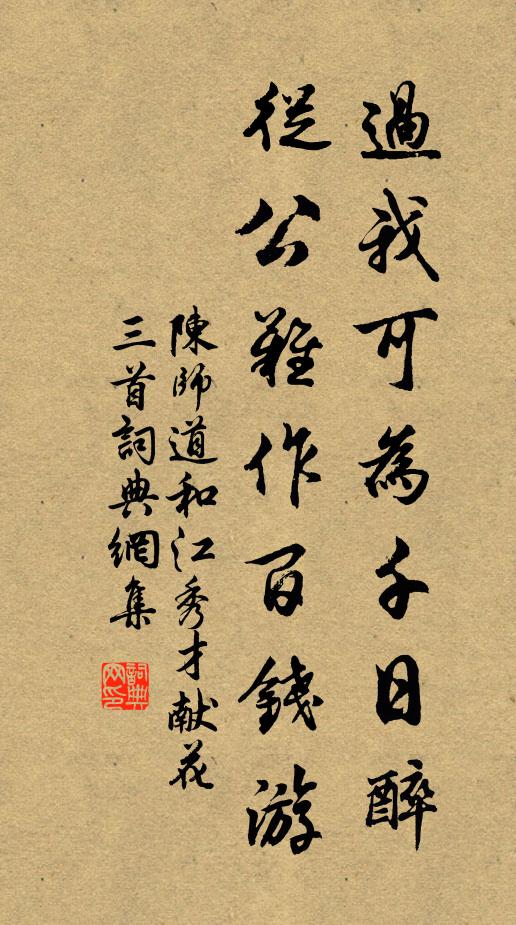 過我可為千日醉
從公難作百錢游
陳師道和江秀才献花
三首詞典網集
詞典網印